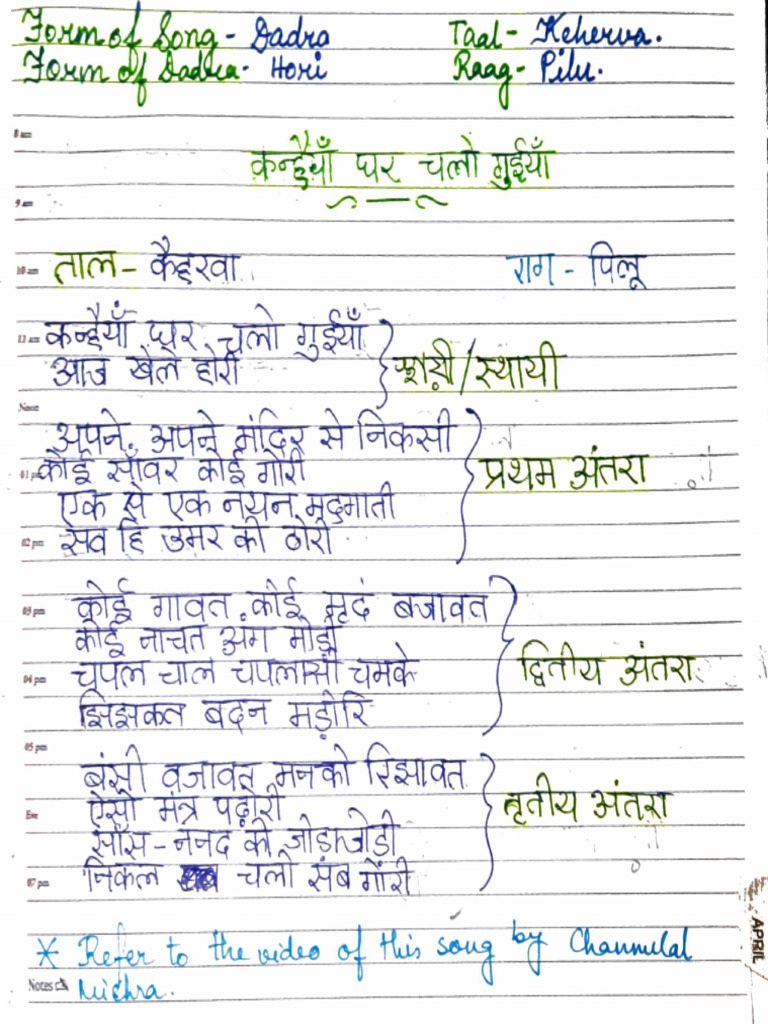 Form of Song - Dadra Taal - Keherva.
Form of Dadra - Hori Raag - Pilu.
8 am
कन्हैयाँ घर चलो गुईयाँ
9 am
10 am ताल - कैहरवा राग - पिलू
11 am कन्हैयाँ घर चलो गुईयाँ
आज खेले होरी /स्थायी
Noon
अपने, अपने मंदिर से निकसी
01 pm कोई साँवर कोई गोरी प्रथम अंतरा
एक से एक नयन मदुमाती
02 pm सब हि उमर की ठोरी
03 pm कोई गावत कोई मृदं बजावत
कोई नाचत अंग मोड़ी
04 pm चपल चाल चपलासी चमके द्वितीय अंतरा
झिझकत बदन मड़ोरि
05 pm
बंसी वजावत मनको रिझावत
Eve ऐसो मंत्र पढ़ोरी तृतीय अंतरा
साँस - ननद की जोड़ाजोड़ी
07 pm निकल चलो सब गोरी
* Refer to the video of this song by Channulal
Notes Mishra.
APRIL